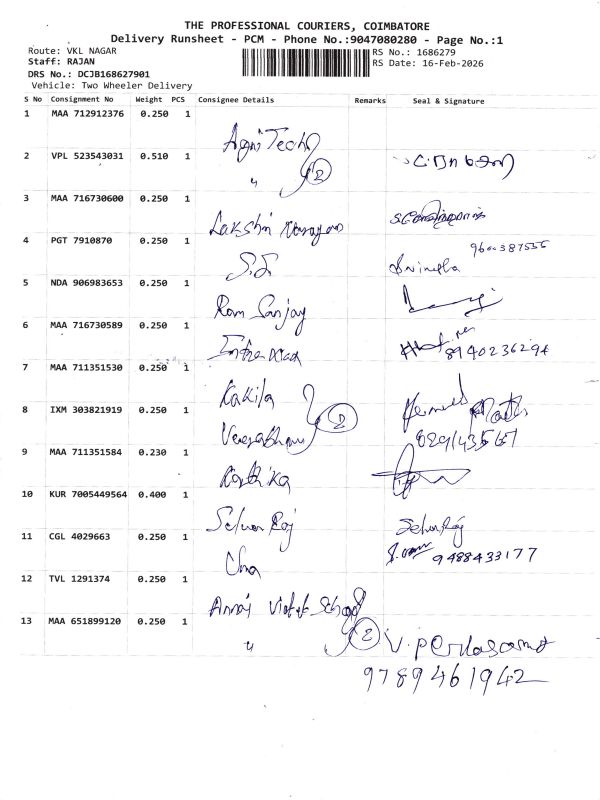 THE PROFESSIONAL COURIERS, COIMBATORE
Delivery Runsheet - PCM - Phone No.:9047080280 - Page No.:1
Route: VKL NAGAR
RS No.: 1686279
Staff: RAJAN
RS Date: 16-Feb-2026
DRS No.: DCJB168627901
Vehicle: Two Wheeler Delivery
S No Consignment No Weight PCS Consignee Details Remarks Seal & Signature
1 MAA 712912376 0.250 1
Agni Tech
2 VPL 523543031 0.510 1
" 2
3 MAA 716730600 0.250 1
Lakshmi Narayan
4 PGT 7910870 0.250 1
S.S.
5 NDA 906983653 0.250 1
Ram Sanjay
6 MAA 716730589 0.250 1
7 MAA 711351530 0.250 1
Kokila
8 IXM 303821919 0.250 1
2
9 MAA 711351584 0.230 1
Karthika
10 KUR 7005449564 0.400 1
Selvan Raj
11 CGL 4029663 0.250 1
9488433177
12 TVL 1291374 0.250 1
13 MAA 651899120 0.250 1
" 2
9789461942